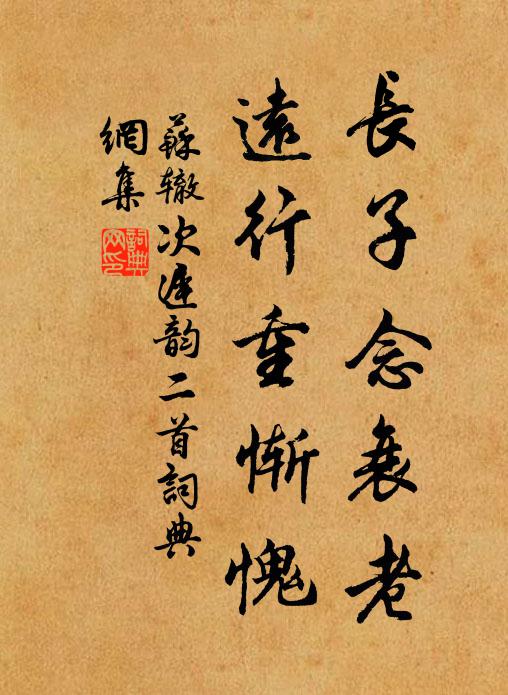 長子念衰老
遠行重慚愧
蘇辙次遲韵二首詞典
網集
詞典
网印